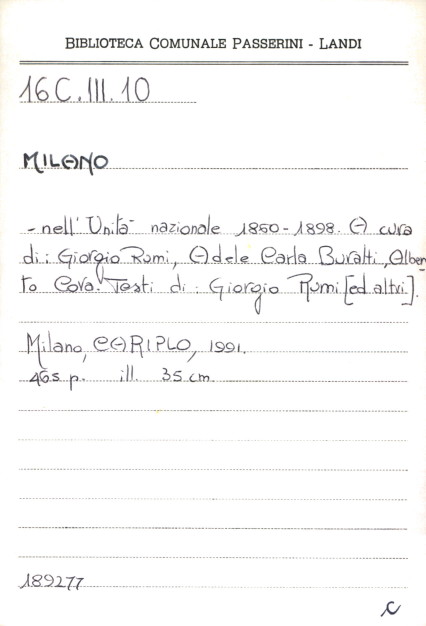 BIBLIOTECA COMUNALE PASSERINI - LANDI
16 C. III. 10
MILANO
- nell'Unità nazionale 1860-1898. A cura
di: Giorgio Rumi, Adele Carla Buratti, Alber
to Cova. Testi di: Giorgio Rumi [ed altri].
Milano, CARIPLO, 1991.
465 p. ill. 35 cm.
189277
C